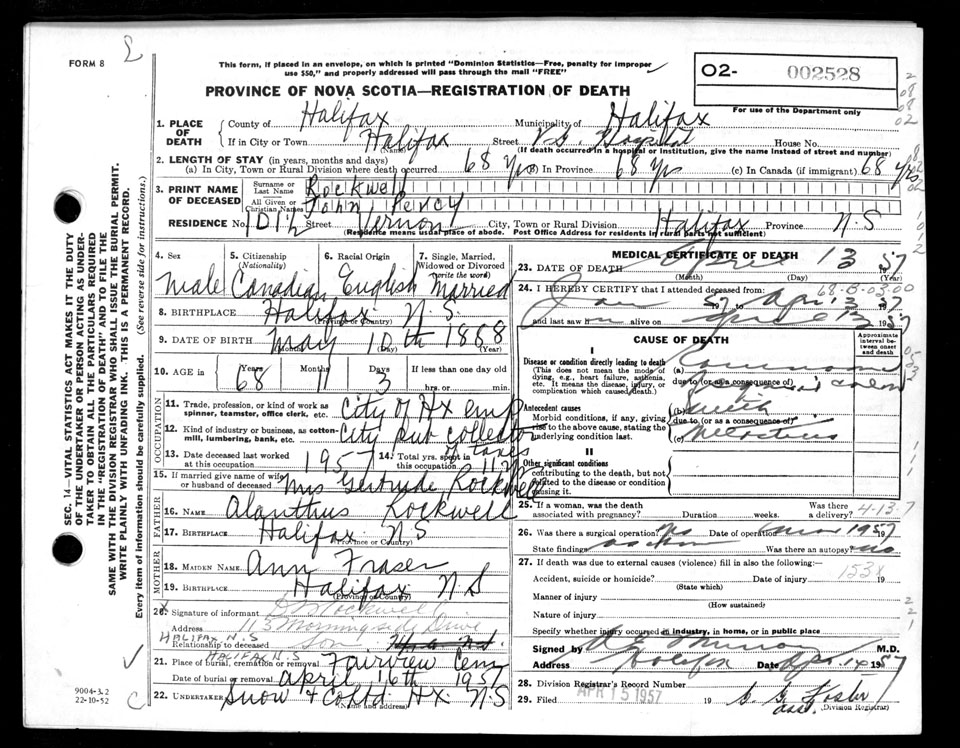 FORM 8
This form, if placed in an envelope, on which is printed "Dominion Statistics—Free, penalty for improper
use $50," and properly addressed will pass through the mail "FREE"
PROVINCE OF NOVA SCOTIA—REGISTRATION OF DEATH
O2- 002528
For use of the Department only
1. PLACE OF DEATH
County of Halifax Municipality of Halifax
If in City or Town Halifax Street V.G. Hospital House No.
(Name) (If death occurred in a hospital or institution, give the name instead of street and number)
2. LENGTH OF STAY (in years, months and days)
(a) In City, Town or Rural Division where death occurred 68 yrs (b) In Province 68 yrs (c) In Canada (if immigrant) 68 yrs
3. PRINT NAME OF DECEASED
Surname or Last Name Rockwell
All Given or Christian Names John Percy
RESIDENCE No. 101½ Street Vernon City, Town or Rural Division Halifax Province N-S
(Residence means usual place of abode. Post Office Address for residents in rural parts not sufficient)
4. Sex 5. Citizenship (Nationality) 6. Racial Origin 7. Single, Married, Widowed or Divorced (write the word)
Male Canadian English Married
8. BIRTHPLACE Halifax N.S.
(Province or Country)
9. DATE OF BIRTH May 10th 1888
(Month) (Year)
10. AGE in Years Months Days If less than one day old
68 11 3 hrs. or min.
OCCUPATION
11. Trade, profession, or kind of work as spinner, teamster, office clerk, etc. City of Hx emp
12. Kind of industry or business, as cotton-mill, lumbering, bank, etc. City collector taxes
13. Date deceased last worked at this occupation 1957 14. Total yrs. spent in this occupation 11 yrs
15. If married give name of wife or husband of deceased Mrs Gertrude Rockwell
FATHER
16. NAME Alanthus Rockwell
17. BIRTHPLACE Halifax N.S
(Province or Country)
MOTHER
18. MAIDEN NAME Ann Fraser
19. BIRTHPLACE Halifax N S
(Province or Country)
20. Signature of informant Rockwell
Address 113 Morningside Drive
HALIFAX N.S
Relationship to deceased Son
HALIFAX N.S
21. Place of burial, cremation or removal Fairview Cem
Date of burial or removal April 16th 1957
22. UNDERTAKER Snow & Co Ltd. Hx. N.S
(Name and address)
MEDICAL CERTIFICATE OF DEATH
23. DATE OF DEATH April 13 57
(Month) (Day) (Year)
24. I HEREBY CERTIFY that I attended deceased from:
68-B-03-00
Jan 57 to Apr 13 1957
and last saw him alive on April 13 1957
CAUSE OF DEATH
Approximate interval between onset and death
I
Disease or condition directly leading to death
(This does not mean the mode of dying, e.g., heart failure, asthenia, etc. It means the disease, injury, or complication which caused death.)
(a) Carcinoma
due to (or as a consequence of) colon
Antecedent causes
Morbid conditions, if any, giving rise to the above cause, stating the underlying condition last.
(b) with
due to (or as a consequence of)
(c) Metastasis
II
Other significant conditions
contributing to the death, but not related to the disease or condition causing it.
25. If a woman, was the death associated with pregnancy? Duration weeks. Was there a delivery?
4-13-7
26. Was there a surgical operation? Yes Date of operation 1957
State findings Was there an autopsy? no
27. If death was due to external causes (violence) fill in also the following:
Accident, suicide or homicide? Date of injury 19
153X
(State which)
Manner of injury
(How sustained)
Nature of injury
Specify whether injury occurred in industry, in home, or in public place
Signed by M.D.
Address Halifax Date Apr 14 1957
28. Division Registrar's Record Number
29. Filed APR 15 1957 19 Foster
(Division Registrar)
SEC. 14—VITAL STATISTICS ACT MAKES IT THE DUTY
OF THE UNDERTAKER OR PERSON ACTING AS UNDER-
TAKER TO OBTAIN ALL THE PARTICULARS REQUIRED
IN THE "REGISTRATION OF DEATH" AND TO FILE THE
SAME WITH THE DIVISION REGISTRAR WHO SHALL ISSUE THE BURIAL PERMIT.
WRITE PLAINLY WITH UNFADING INK. THIS IS A PERMANENT RECORD.
Every item of information should be carefully supplied. (See reverse side for instructions.)
9004-3.2
22-10-52